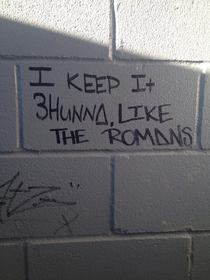 I KEEP It
3HUNNA, LIKE
THE ROMANS